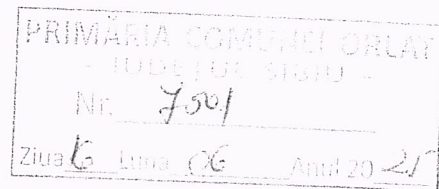 PRIMĂRIA COMUNEI ORLAT
- JUDEȚUL SIBIU -
Nr. 7501
Ziua Luna 06 Anul 20